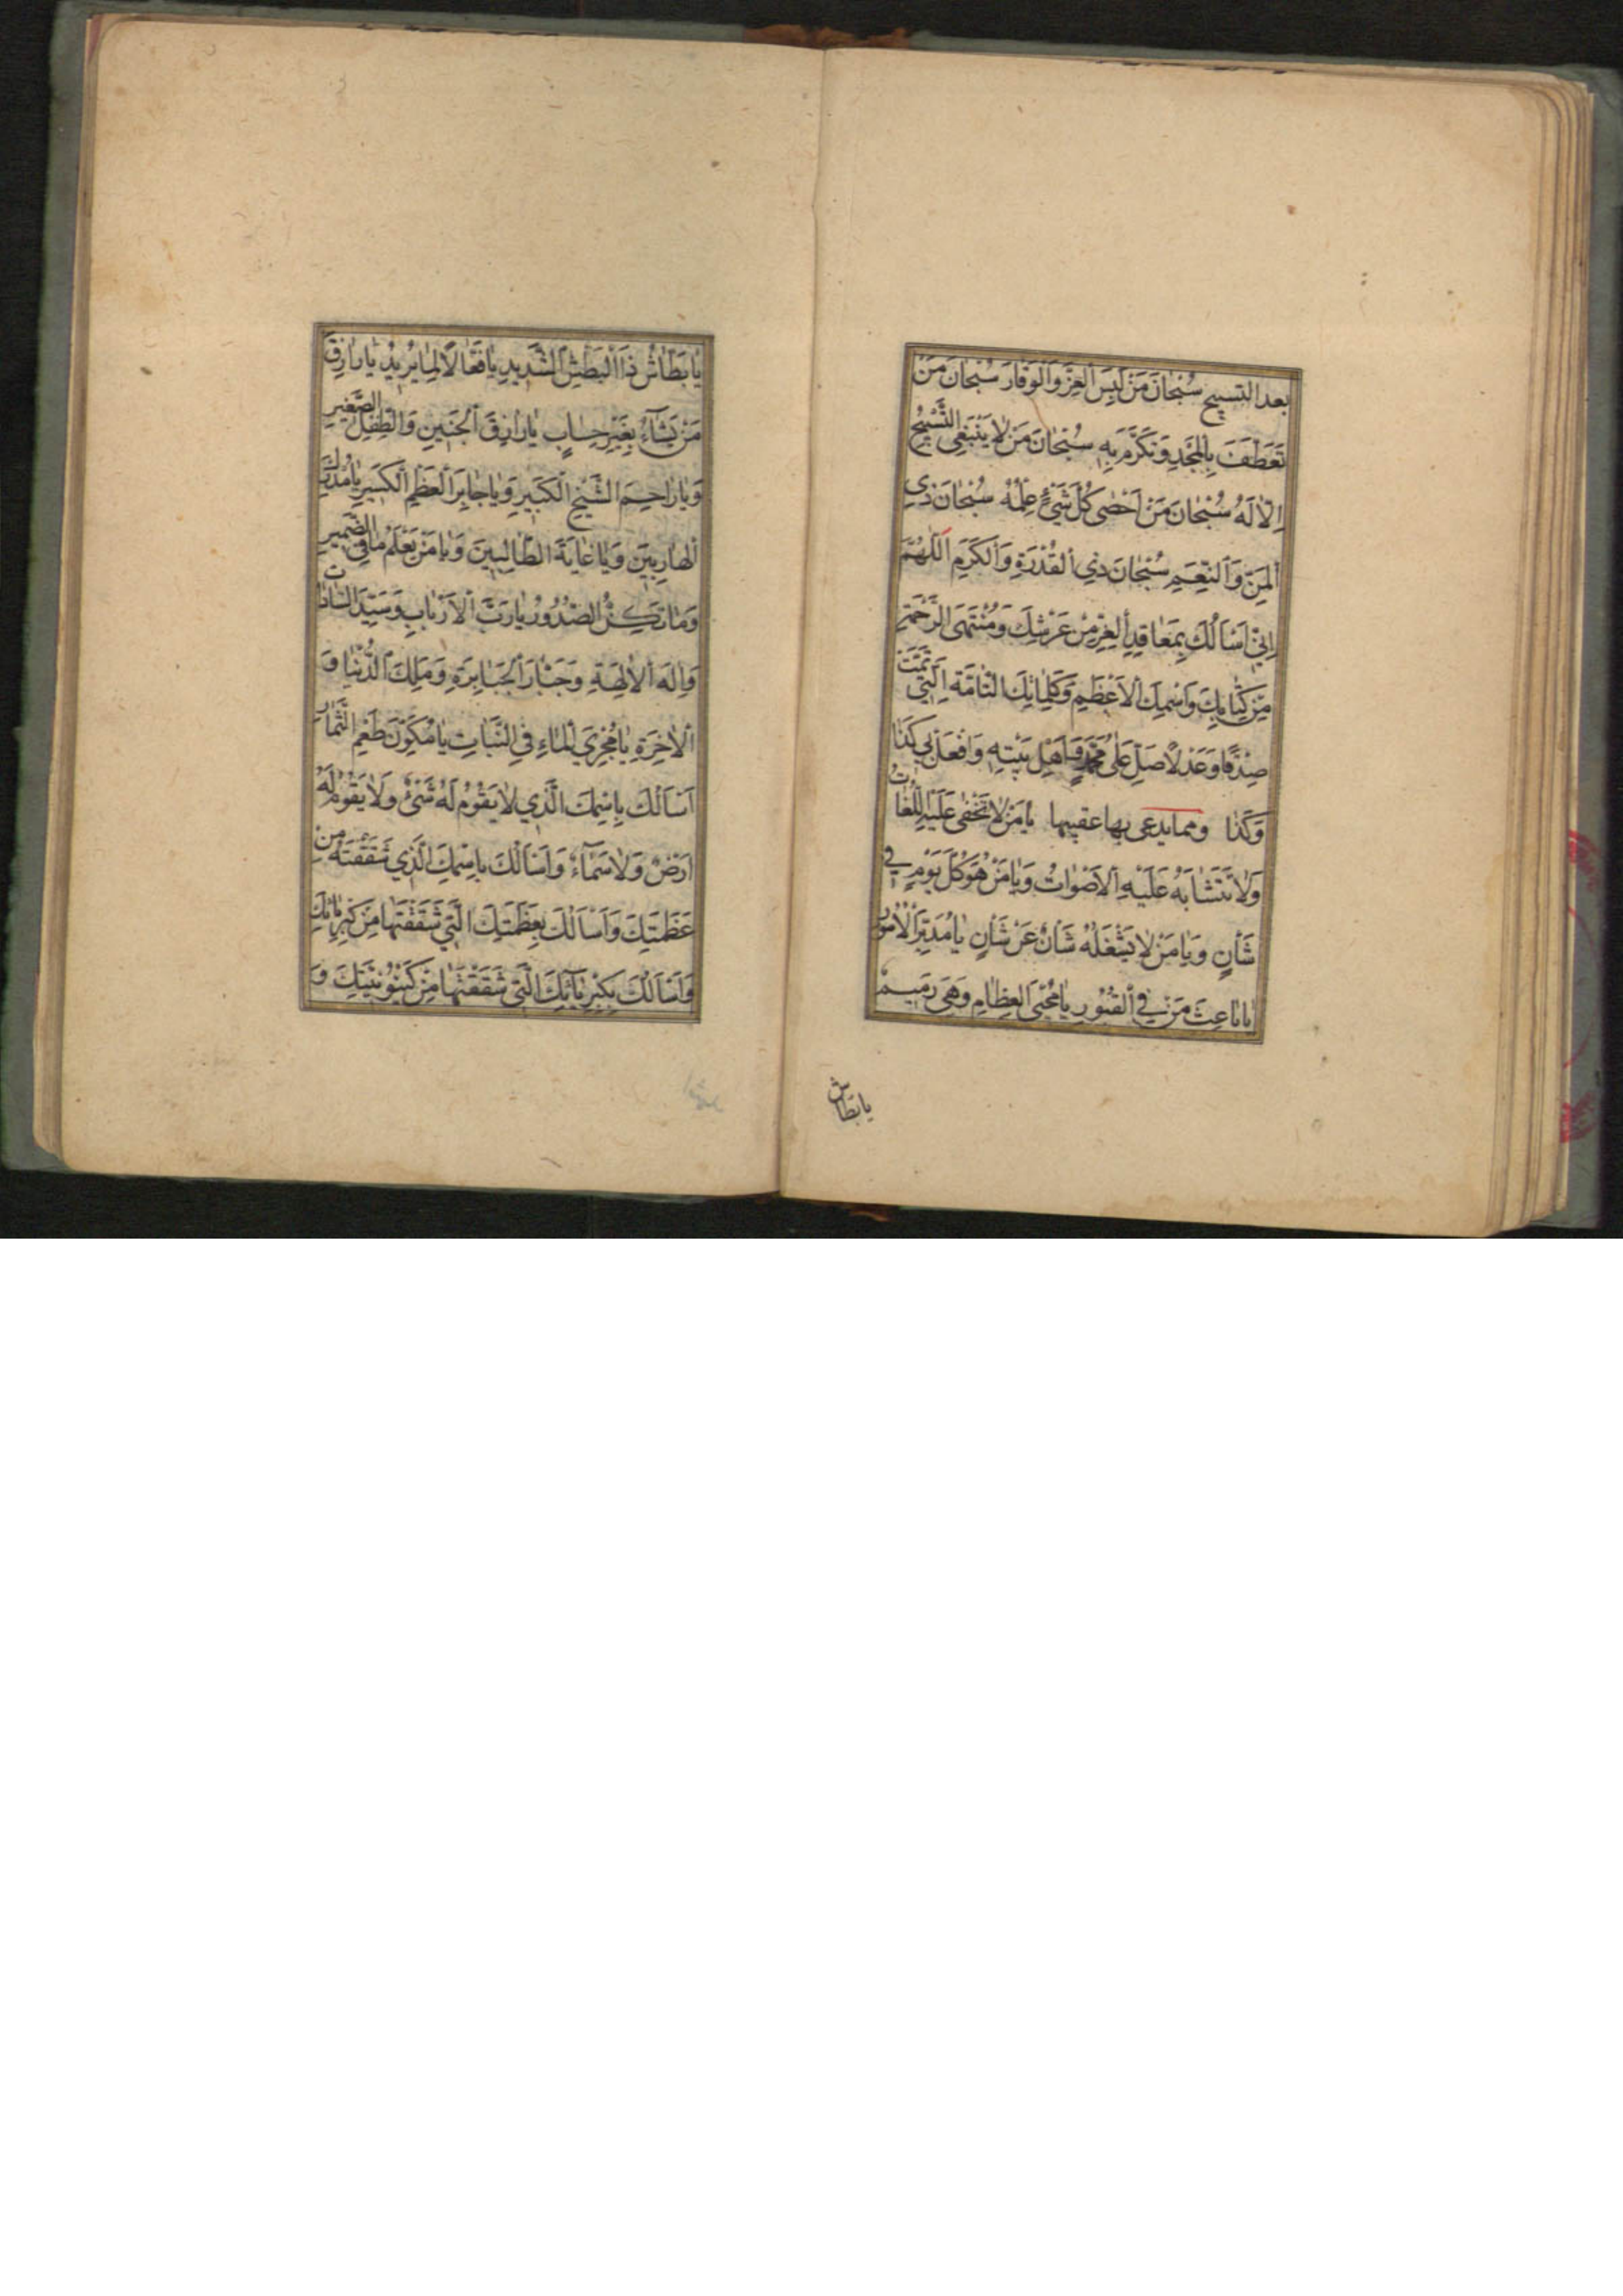 بعد التسبيح سُبْحانَ مَنْ لَبِسَ الْعِزَّ وَالْوَقارَ سُبْحانَ مَنْ
تَعَطَّفَ بِالْمَجْدِ وَتَكَرَّمَ بِهِ سُبْحانَ مَنْ لا يَنْبَغِي التَّسْبِيحُ
اِلّا لَهُ سُبْحانَ مَنْ اَحْصى كُلَّ شَيْءٍ عِلْمُهُ سُبْحانَ ذِي
الْمَنِّ وَالنِّعَمِ سُبْحانَ ذِي الْقُدْرَةِ وَالْكَرَمِ اَللّهُمَّ
اِنّي اَسْاَلُكَ بِمَعاقِدِ الْعِزِّ مِنْ عَرْشِكَ وَمُنْتَهَى الرَّحْمَةِ
مِنْ كِتابِكَ وَاسْمِكَ الْاَعْظَمِ وَكَلِماتِكَ التّامَّةِ الَّتي تَمَّتْ
صِدْقًا وَعَدْلاً صَلِّ عَلى مُحَمَّدٍ وَاَهْلِ بَيْتِهِ وَافْعَلْ بي كَذا
وَكَذا ومما يدعى بها عقيبها يا مَنْ لا تَخْفى عَلَيْهِ اللُّغاتُ
وَلا تَتَشابَهُ عَلَيْهِ الْاَصْواتُ وَيا مَنْ هُوَ كُلَّ يَوْمٍ في
شَأْنٍ وَيا مَنْ لا يَشْغَلُهُ شَأْنٌ عَنْ شَأْنٍ يا مُدَبِّرَ الْاُمُورِ
يا باعِثَ مَنْ فِي الْقُبُورِ يا مُحْيِيَ الْعِظامِ وَهِيَ رَميمٌ
يا بطاش
يا بَطّاشُ ذَا الْبَطْشِ الشَّديدِ يا فَعّالاً لِما يُريدُ يا رازِقَ
مَنْ يَشآءُ بِغَيْرِ حِسابٍ يا رازِقَ الْجَنينِ وَالطِّفْلِ الصَّغيرِ
وَيا راحِمَ الشَّيْخِ الْكَبيرِ وَيا جابِرَ الْعَظْمِ الْكَسيرِ يا مُدْرِكَ
الْهارِبينَ وَيا غايَةَ الطّالِبينَ وَيا مَنْ يَعْلَمُ ما فِي الضَّميرِ
وَما تُكِنُّ الصُّدُورُ يا رَبَّ الْاَرْبابِ وَسَيِّدَ السّاداتِ
وَاِلهَ الْالِهَةِ وَجَبّارَ الْجَبابِرَةِ وَمَلِكَ الدُّنْيا وَ
الْاخِرَةِ يا مُجْرِيَ الْماءِ فِي النَّباتِ يا مُكَوِّنَ طَعْمِ الثِّمارِ
اَسْاَلُكَ بِاسْمِكَ الَّذي لا يَقُومُ لَهُ شَيْءٌ وَلا يَقُومُ لَهُ
اَرْضٌ وَلا سَمآءٌ وَاَسْاَلُكَ بِاسْمِكَ الَّذي شَقَقْتَهُ مِنْ
عَظَمَتِكَ وَاَسْاَلُكَ بِعَظَمَتِكَ الَّتي شَقَقْتَها مِنْ كِبْرِيائِكَ
وَاَسْاَلُكَ بِكِبْرِيآئِكَ الَّتي شَقَقْتَها مِنْ كَيْنُونِيَّتِكَ وَ